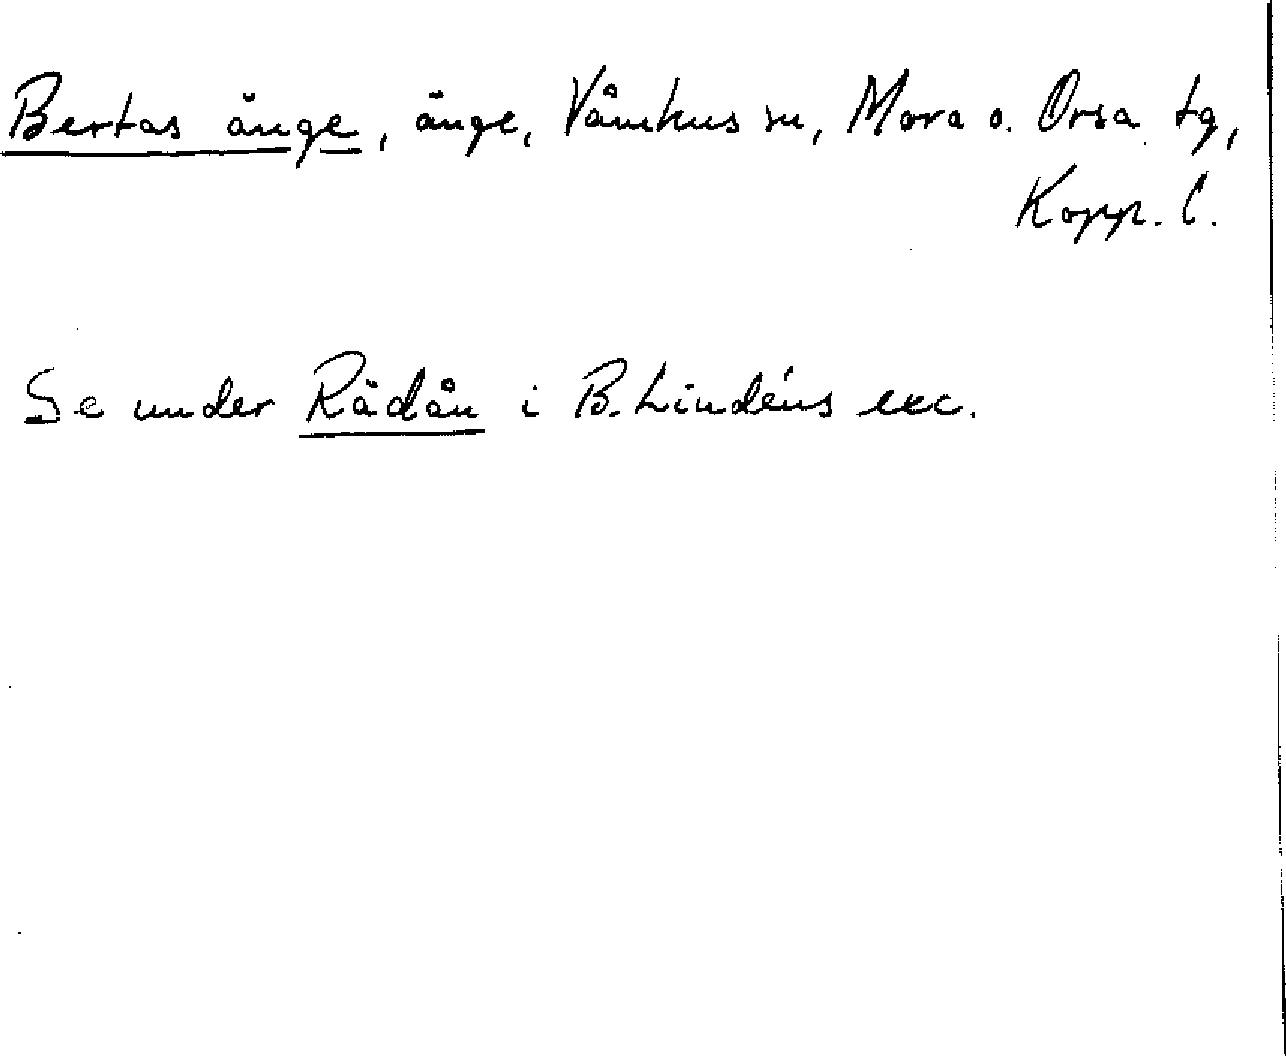 Bertas änge, änge, Våmhus sn, Mora o. Orsa tg,
Kopp. l.
Se under Rädån i B. Lindéns exc.